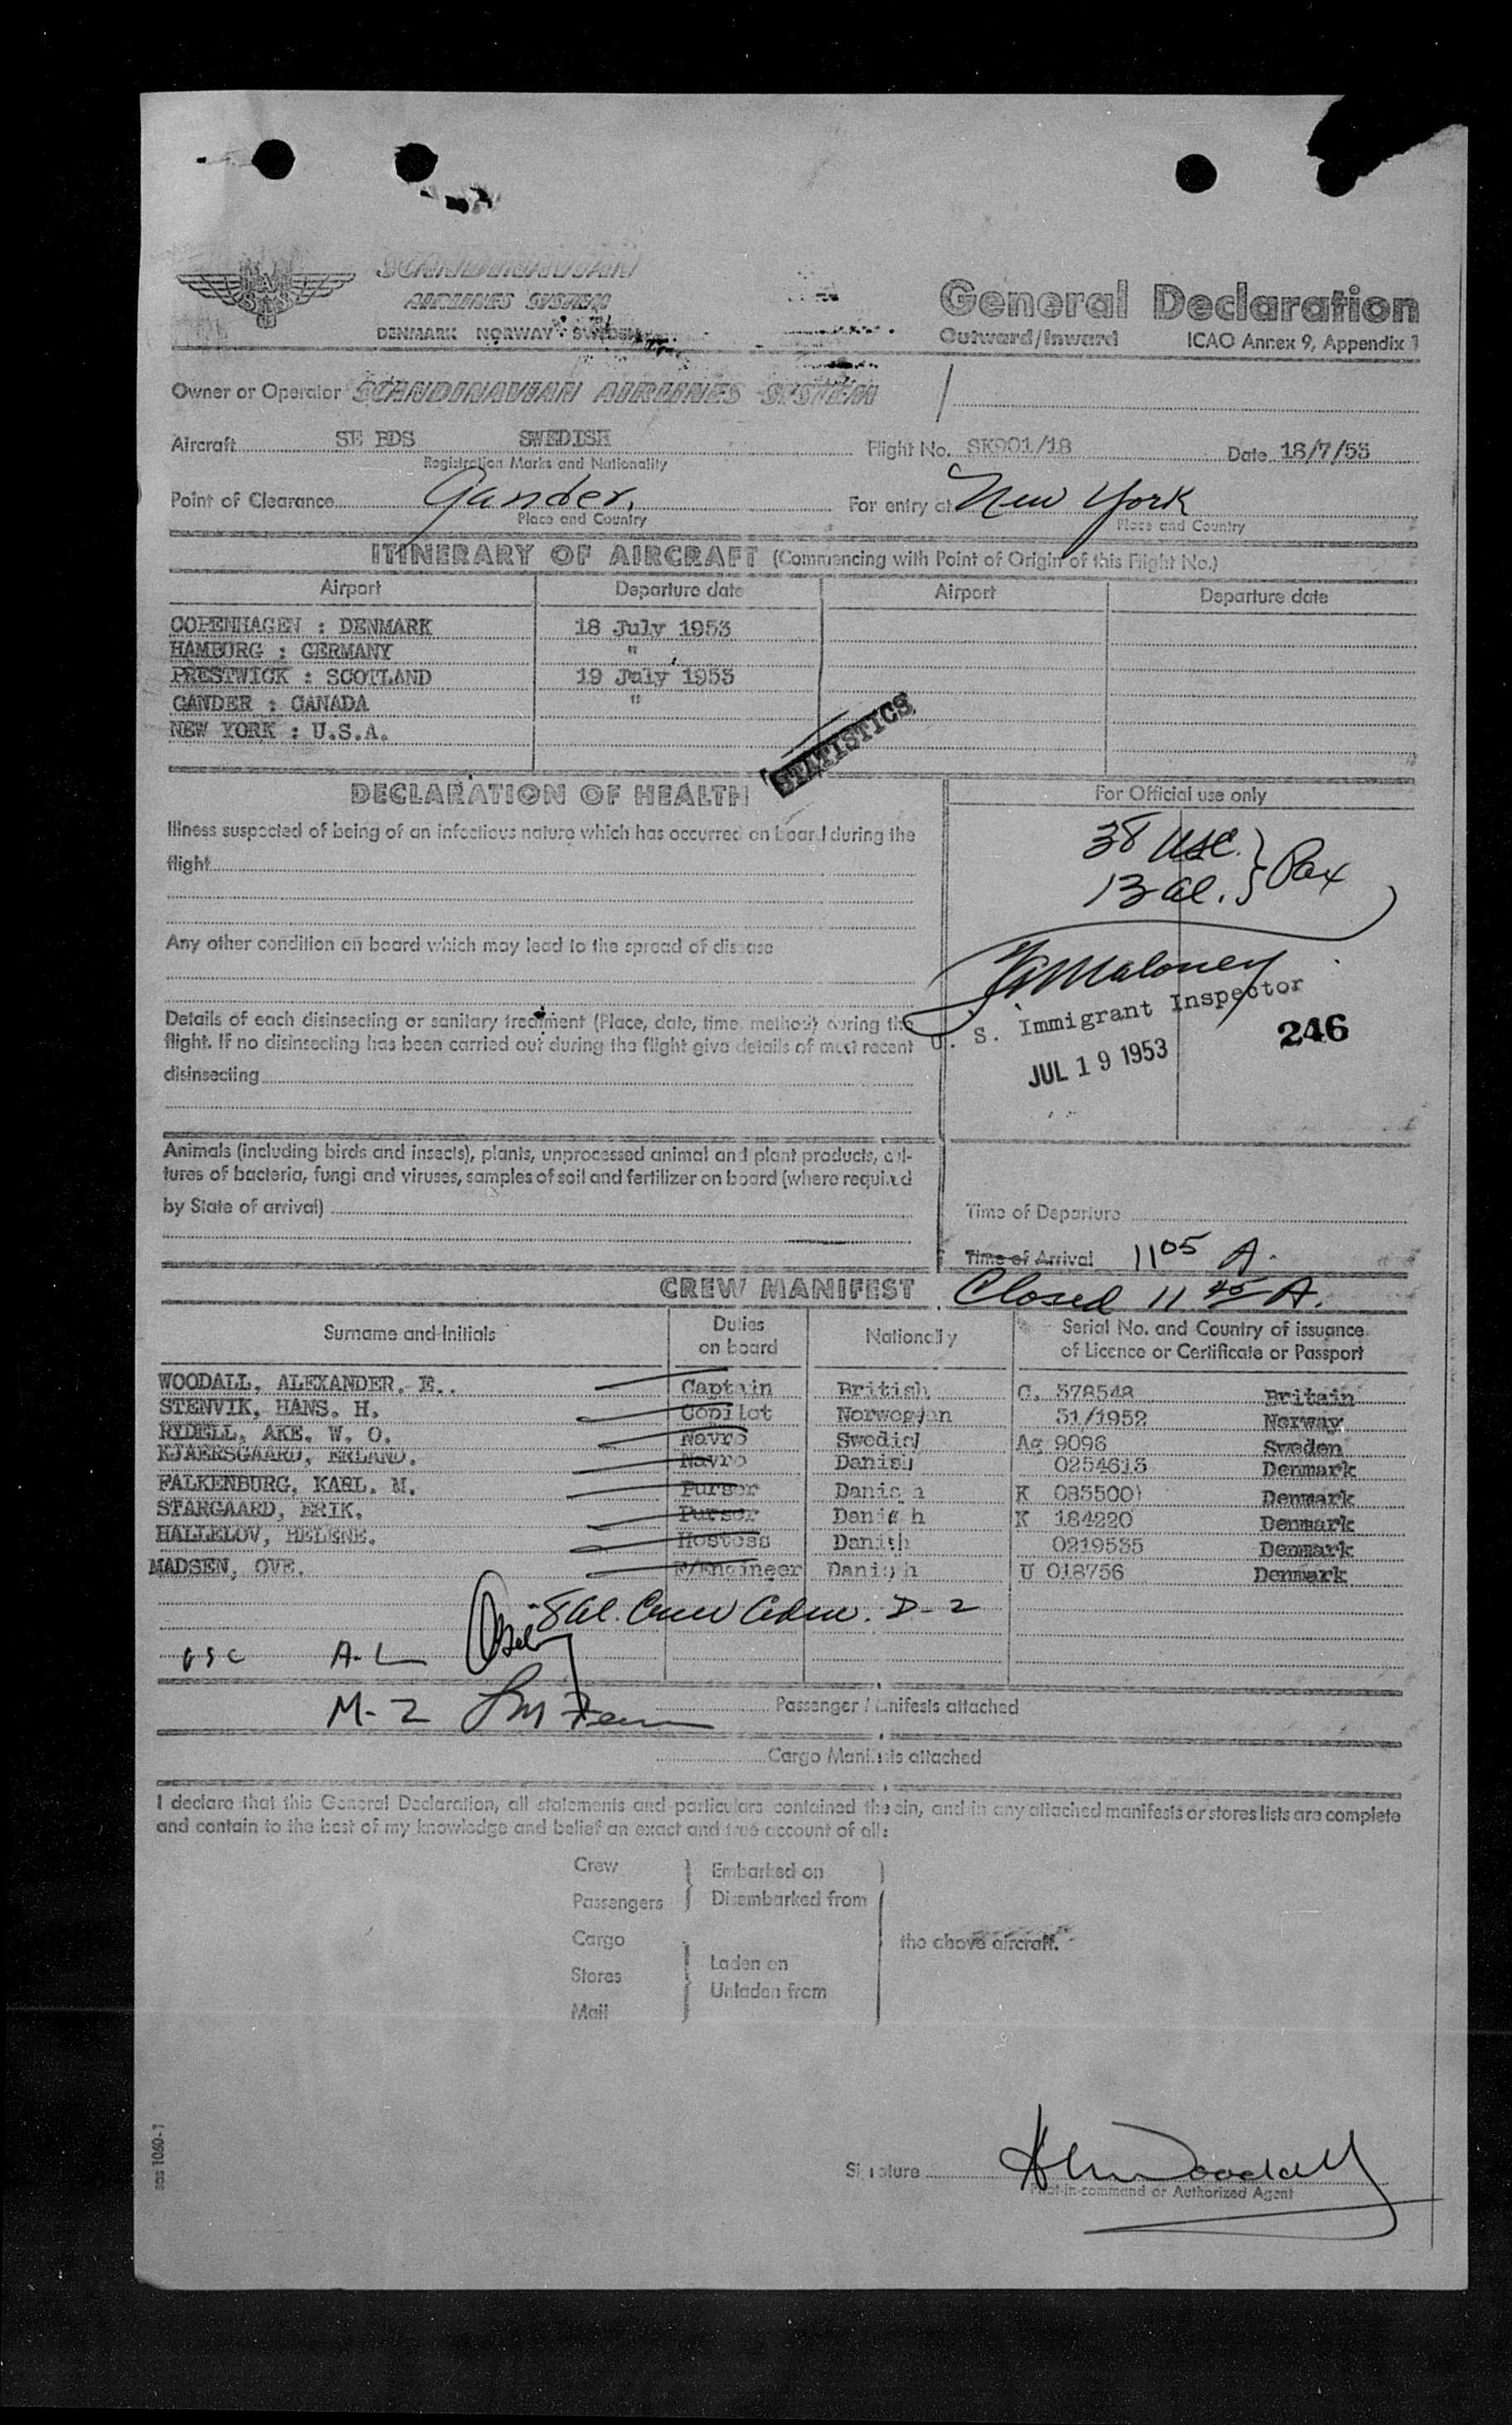 SCANDINAVIAN
AIRLINES SYSTEM
DENMARK NORWAY SWEDEN
SAS
General Declaration
Outward/Inward ICAO Annex 9, Appendix 1
Owner or Operator SCANDINAVIAN AIRLINES SYSTEM
Aircraft SE BDS SWEDISH Flight No. SK901/18 Date 18/7/53
Registration Marks and Nationality
Point of Clearance Gander, For entry at New York
Place and Country Place and Country
ITINERARY OF AIRCRAFT (Commencing with Point of Origin of this Flight No.)
Airport Departure date Airport Departure date
COPENHAGEN : DENMARK 18 July 1953
HAMBURG : GERMANY "
PRESTWICK : SCOTLAND 19 July 1953
GANDER : CANADA "
NEW YORK : U.S.A.
STATISTICS
DECLARATION OF HEALTH For Official use only
Illness suspected of being of an infectious nature which has occurred on board during the
flight
38 USC. } Pax
13 al.
Any other condition on board which may lead to the spread of disease
Maloney
U. S. Immigrant Inspector
246
JUL 19 1953
Details of each disinsecting or sanitary treatment (Place, date, time, method) during the
flight. If no disinsecting has been carried out during the flight give details of most recent
disinsecting
Animals (including birds and insects), plants, unprocessed animal and plant products, cul-
tures of bacteria, fungi and viruses, samples of soil and fertilizer on board (where required
by State of arrival)
Time of Departure
Time of Arrival 11 05 A.
CREW MANIFEST Closed 11 45 A.
Surname and Initials Duties on board Nationality Serial No. and Country of issuance of Licence or Certificate or Passport
WOODALL, ALEXANDER. E.. Captain British C. 578548 Britain
STENVIK, HANS. H. Copilot Norwegian 31/1952 Norway
RYDELL, AKE. W. O. Navro Swedish Ag 9096 Sweden
KJAERSGAARD, ERLAND. Navro Danish 0254613 Denmark
FALKENBURG, KARL. M. Purser Danish K 085500 Denmark
STARGAARD, ERIK. Purser Danish K 184220 Denmark
HALLELOV, HELENE. Hostess Danish 0219535 Denmark
MADSEN, OVE. F/Engineer Danish U 018756 Denmark
8 al. Crew Adm. D-2
USC A-L
M-2
Passenger Manifests attached
Cargo Manifests attached
I declare that this General Declaration, all statements and particulars contained therein, and in any attached manifests or stores lists are complete
and contain to the best of my knowledge and belief an exact and true account of all:
Crew Embarked on
Passengers Disembarked from
Cargo the above aircraft.
Stores Laden on
Mail Unladen from
sas 1060-1
Signature Woodall
Pilot-in-command or Authorized Agent